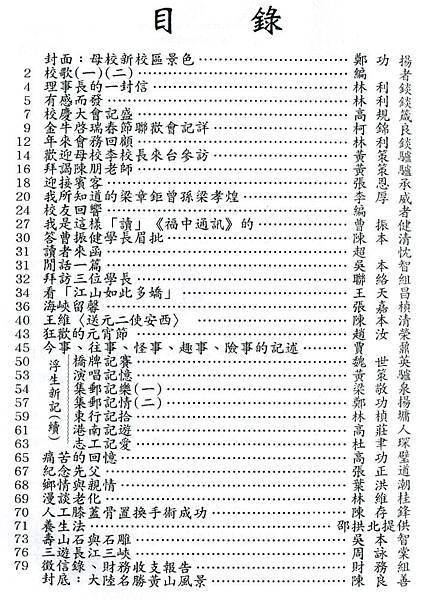 目錄
封面：母校新校區景色 鄭功揚
2 校歌(一)(二) 編者
4 理事長的一封信 林利錟
5 有感而發 林利錟
7 校慶大會記盛 高規箴
9 金牛啓瑞春節聯歡會記詳 柯錦良
12 年來會務回顧 林利錟
14 歡迎母校李校長來台參訪 黃策驢
16 拜謁陳朋老師 黃策驢
18 迎接賓客 張恩承
20 我所知道的梁章鉅曾孫梁孝煌 李厚威
24 校友回響 編者
27 我是這�「讀」《福中通訊》的 曹振健
30 答曹振健學長眉批 陳本清
31 讀者來函 趙忱
31 閒話一篇 吳本智
32 拜訪三位學長 聯絡組
34 看「江山如此多嬌」 王天昌
36 海峽留馨 張嘉楨
40 王維〈送元二使安西〉 陳本清
43 狂歡的元宵節 趙汝榮
45 今事、往事、怪事、趣事、險事的記述 賈鼐
浮生新記(續)
50 橋牌記賽 魏世英
53 演唱記憶 黃策驢
54 集郵記樂(一) 梁敬泉
57 集郵記情(二) 鄭功揚
59 東行記拾 林楨墉
61 港南記遊 高莊人
63 志工記愛 杜聿琛
65 痛苦的回憶 高功璧
67 紀念先父 張正道
68 鄉情與親情 葉洪潮
69 漫談老化 林維桂
70 人工膝蓋骨置換手術成功 陳存鋒
71 養生法 邵拱北提供
73 壽山石與石雕 吳本智
76 三遊長江三峽 周詠棠
79 徵信錄、財務收支報告 財務組
封底：大陸名勝黃山風景 陳良善